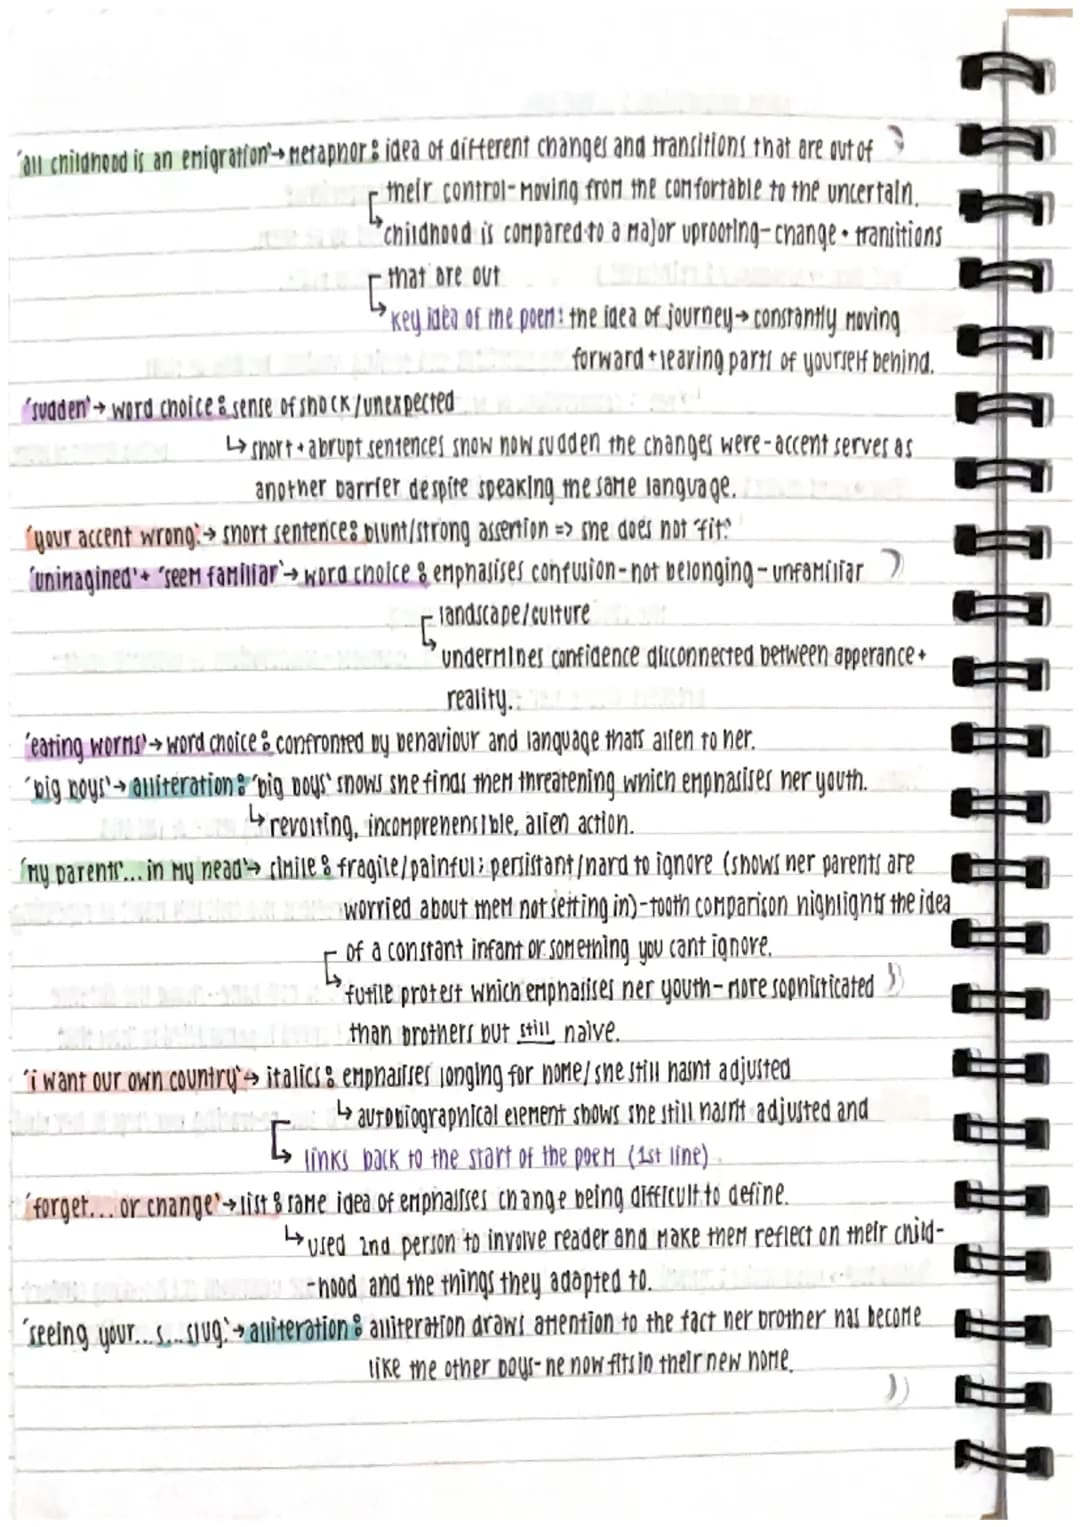 'all childhood is an emigration' → metaphor: idea of different changes and transitions that are out of
their control - moving from the comfortable to the uncertain.
↳ childhood is compared to a major uprooting - change + transitions
that are out
↳ key idea of the poem: the idea of journey → constantly moving
forward + leaving parts of yourself behind.
'sudden' → word choice: sense of shock/unexpected
↳ short + abrupt sentences show how sudden the changes were - accent serves as
another barrier despite speaking the same language.
'your accent wrong.' → short sentence: blunt/strong assertion => she does not "fit".
'unimagined' + 'seem familiar' → word choice: emphasises confusion - not belonging - unfamiliar
landscape/culture
↳ undermines confidence disconnected between apperance +
reality.
'eating worms' → word choice: confronted by behaviour and language thats alien to her.
'big boys' → alliteration: 'big boys' shows she finds them threatening which emphasises her youth.
↳ revolting, incomprehensible, alien action.
'my parents'... in my head' → simile: fragile/painful; persistant/hard to ignore (shows her parents are
worried about them not setting in) - tooth comparison highlights the idea
of a constant infant or something you cant ignore.
↳ futile protest which emphasises her youth - more sophisticated
than brothers but still naive.
'i want our own country' → italics: emphasises longing for home/she still hasnt adjusted
↳ autobiographical element shows she still hasn't adjusted and
↳ links back to the start of the poem (1st line)
'forget... or change' → list: same idea of emphasises change being difficult to define.
↳ used 2nd person to involve reader and make them reflect on their child-
-hood and the things they adapted to.
'seeing your...s...slug.' → alliteration: alliteration draws attention to the fact her brother has become
like the other boys - he now fits in their new home.